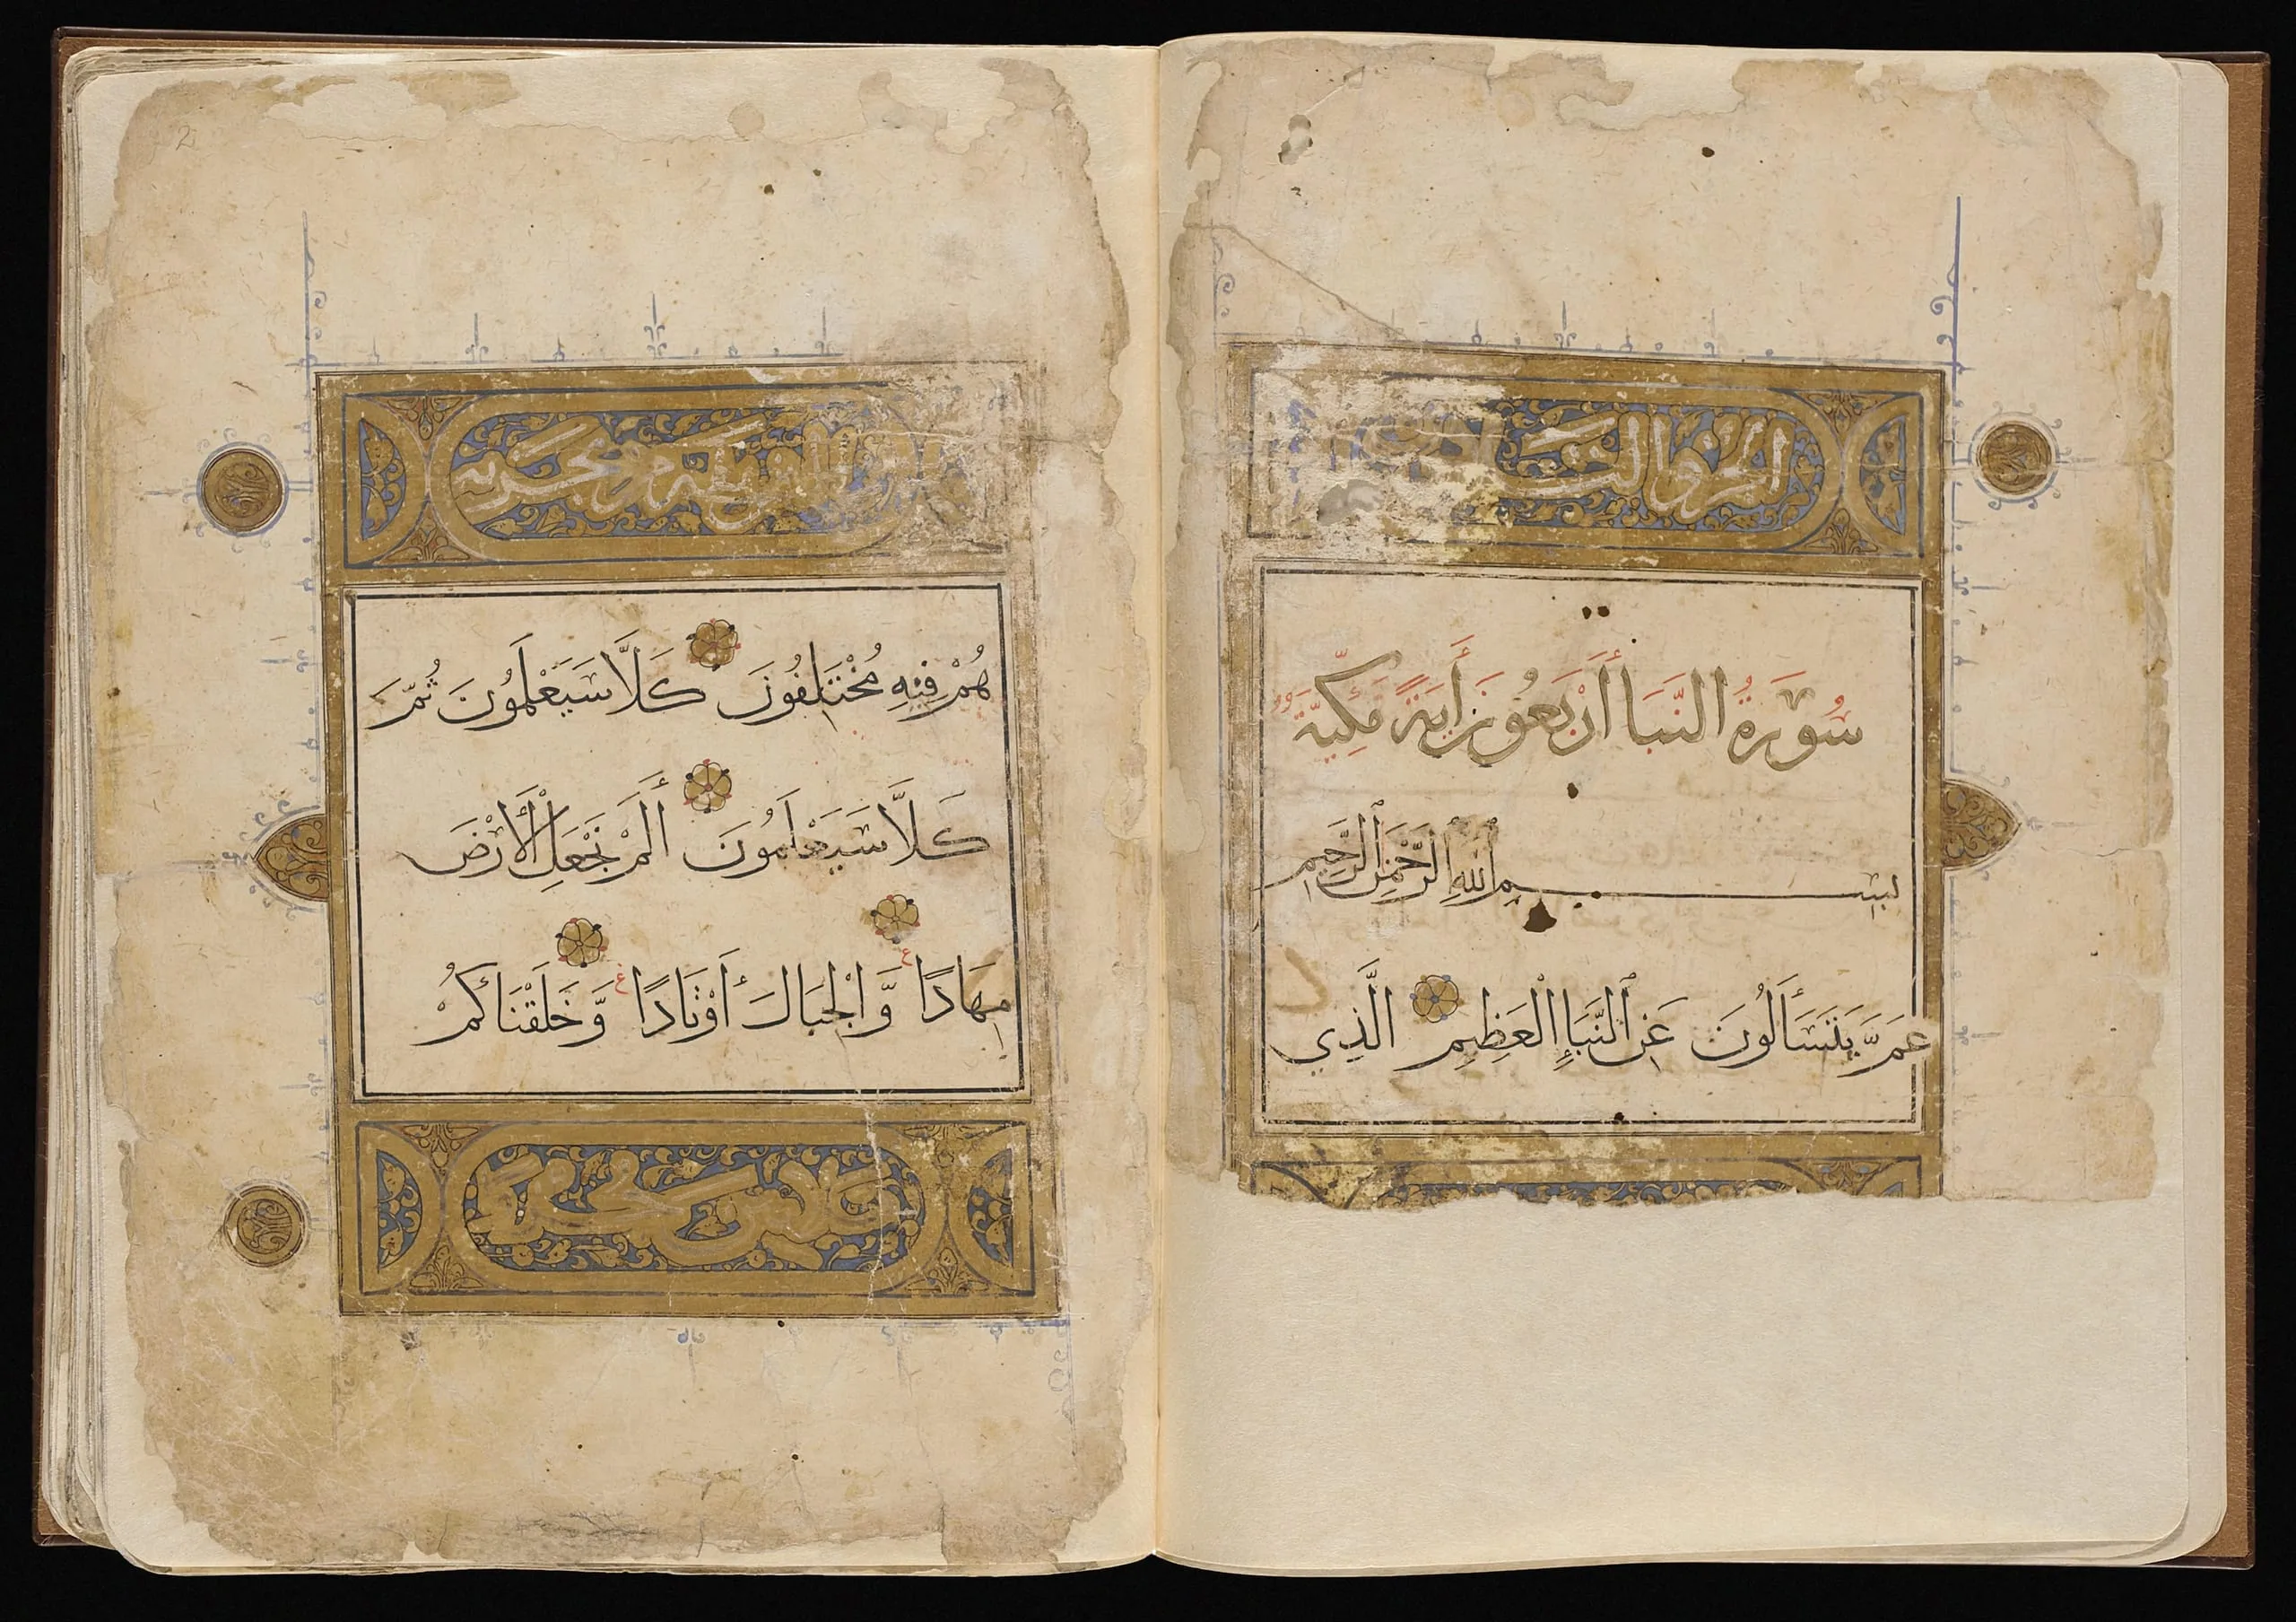 الجزء الثلاثون
سُورَةُ النَّبَأ أَرْبَعُونَ أَيَةً مَكِّيَّةٌ
بِسْمِ ٱللَّهِ ٱلرَّحْمَٰنِ ٱلرَّحِيمِ
عَمَّ يَتَسَأَلُونَ عَنِ ٱلنَّبَإِ الْعَظِيمِ الَّذِي
هُمْ فِيهِ مُخْتَلِفُونَ كَلَّا سَيَعْلَمُونَ ثُمَّ
كَلَّا سَيَعْلَمُونَ أَلَمْ نَجْعَلِ الْأَرْضَ
مِهَادًا وَّالْجِبَالَ أَوْتَادًا وَّخَلَقْنَاكُمْ
2